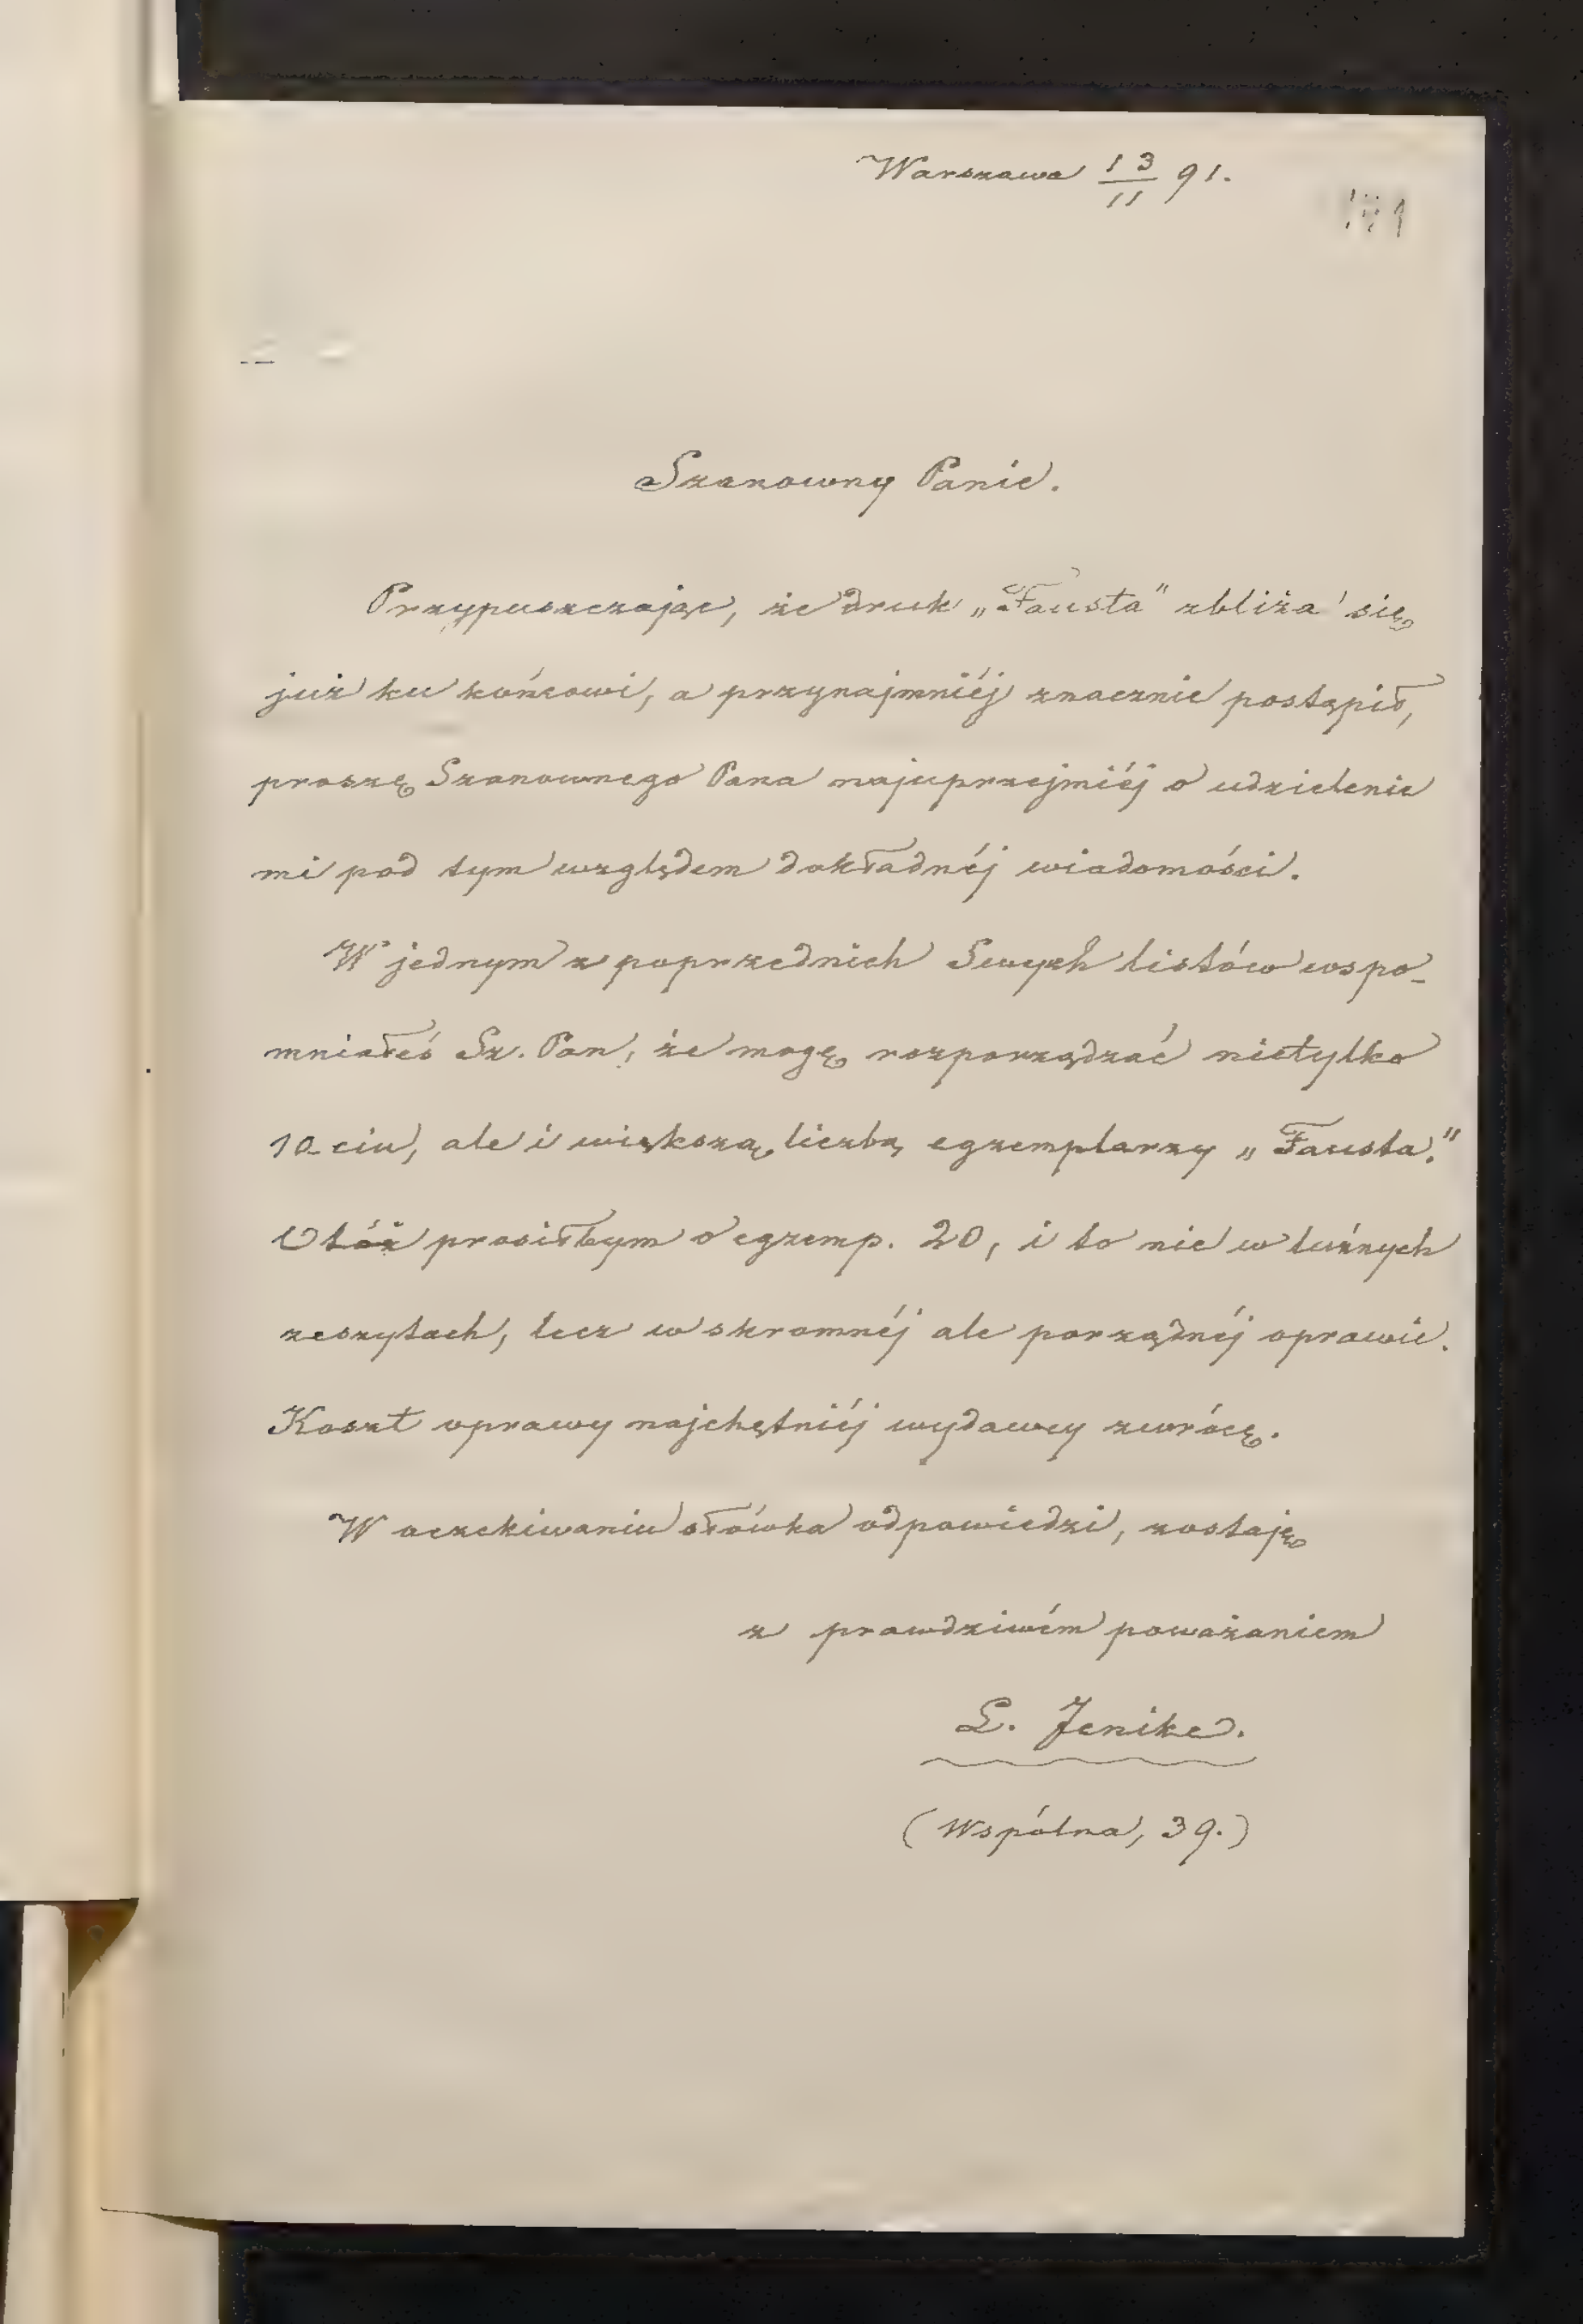 Warszawa 13/11 91.
Szanowny Panie.
Przypuszczając, że druk „Fausta” zbliża się
już ku końcowi, a przynajmniéj znacznie postąpił,
proszę Szanownego Pana najuprzejmiéj o udzielenie
mi pod tym względem dokładnéj wiadomości.
W jednym z poprzednich Swych listów wspo-
mniałeś Sz. Pan, że mogę rozporządzać nietylko
10 ciu, ale i większą liczbą egzemplarzy „Fausta.”
Otóż prosiłbym o egzemp. 20, i to nie w luźnych
zeszytach, lecz w skromnéj ale porządnéj oprawie.
Koszt oprawy najchętniéj wydawcy zwrócę.
W oczekiwaniu słówka odpowiedzi, zostaję
z prawdziwém poważaniem
L. Jenike.
(Wspólna, 39.)